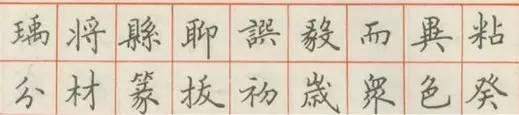 瑀将縣聊譔毅而異粘
分材篆拔初歲眾色癸